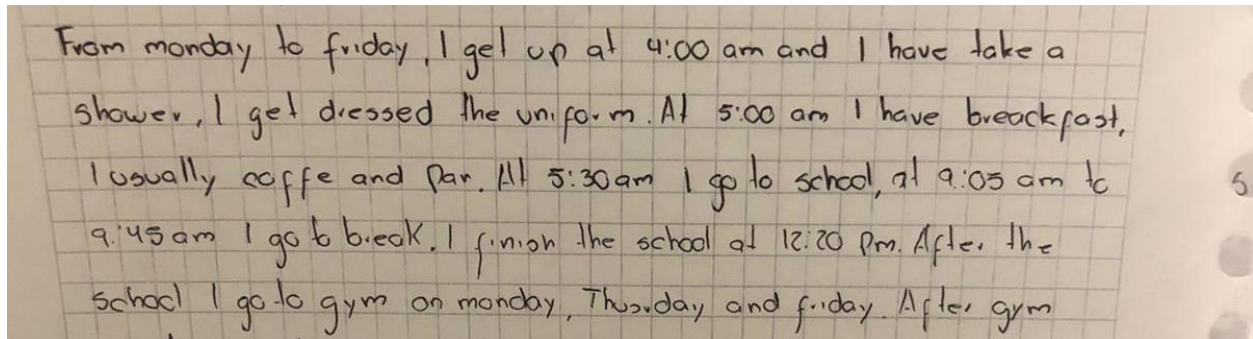 From monday to friday, I get up at 4:00 am and I have take a
shower, I get dressed the uniform. At 5:00 am I have breackfast,
I usually coffe and Pan. At 5:30am I go to school, at 9:05 am to
9:45am I go to break. I finish the school at 12:20 pm. After the
school I go to gym on monday, Thusday and friday. After gym